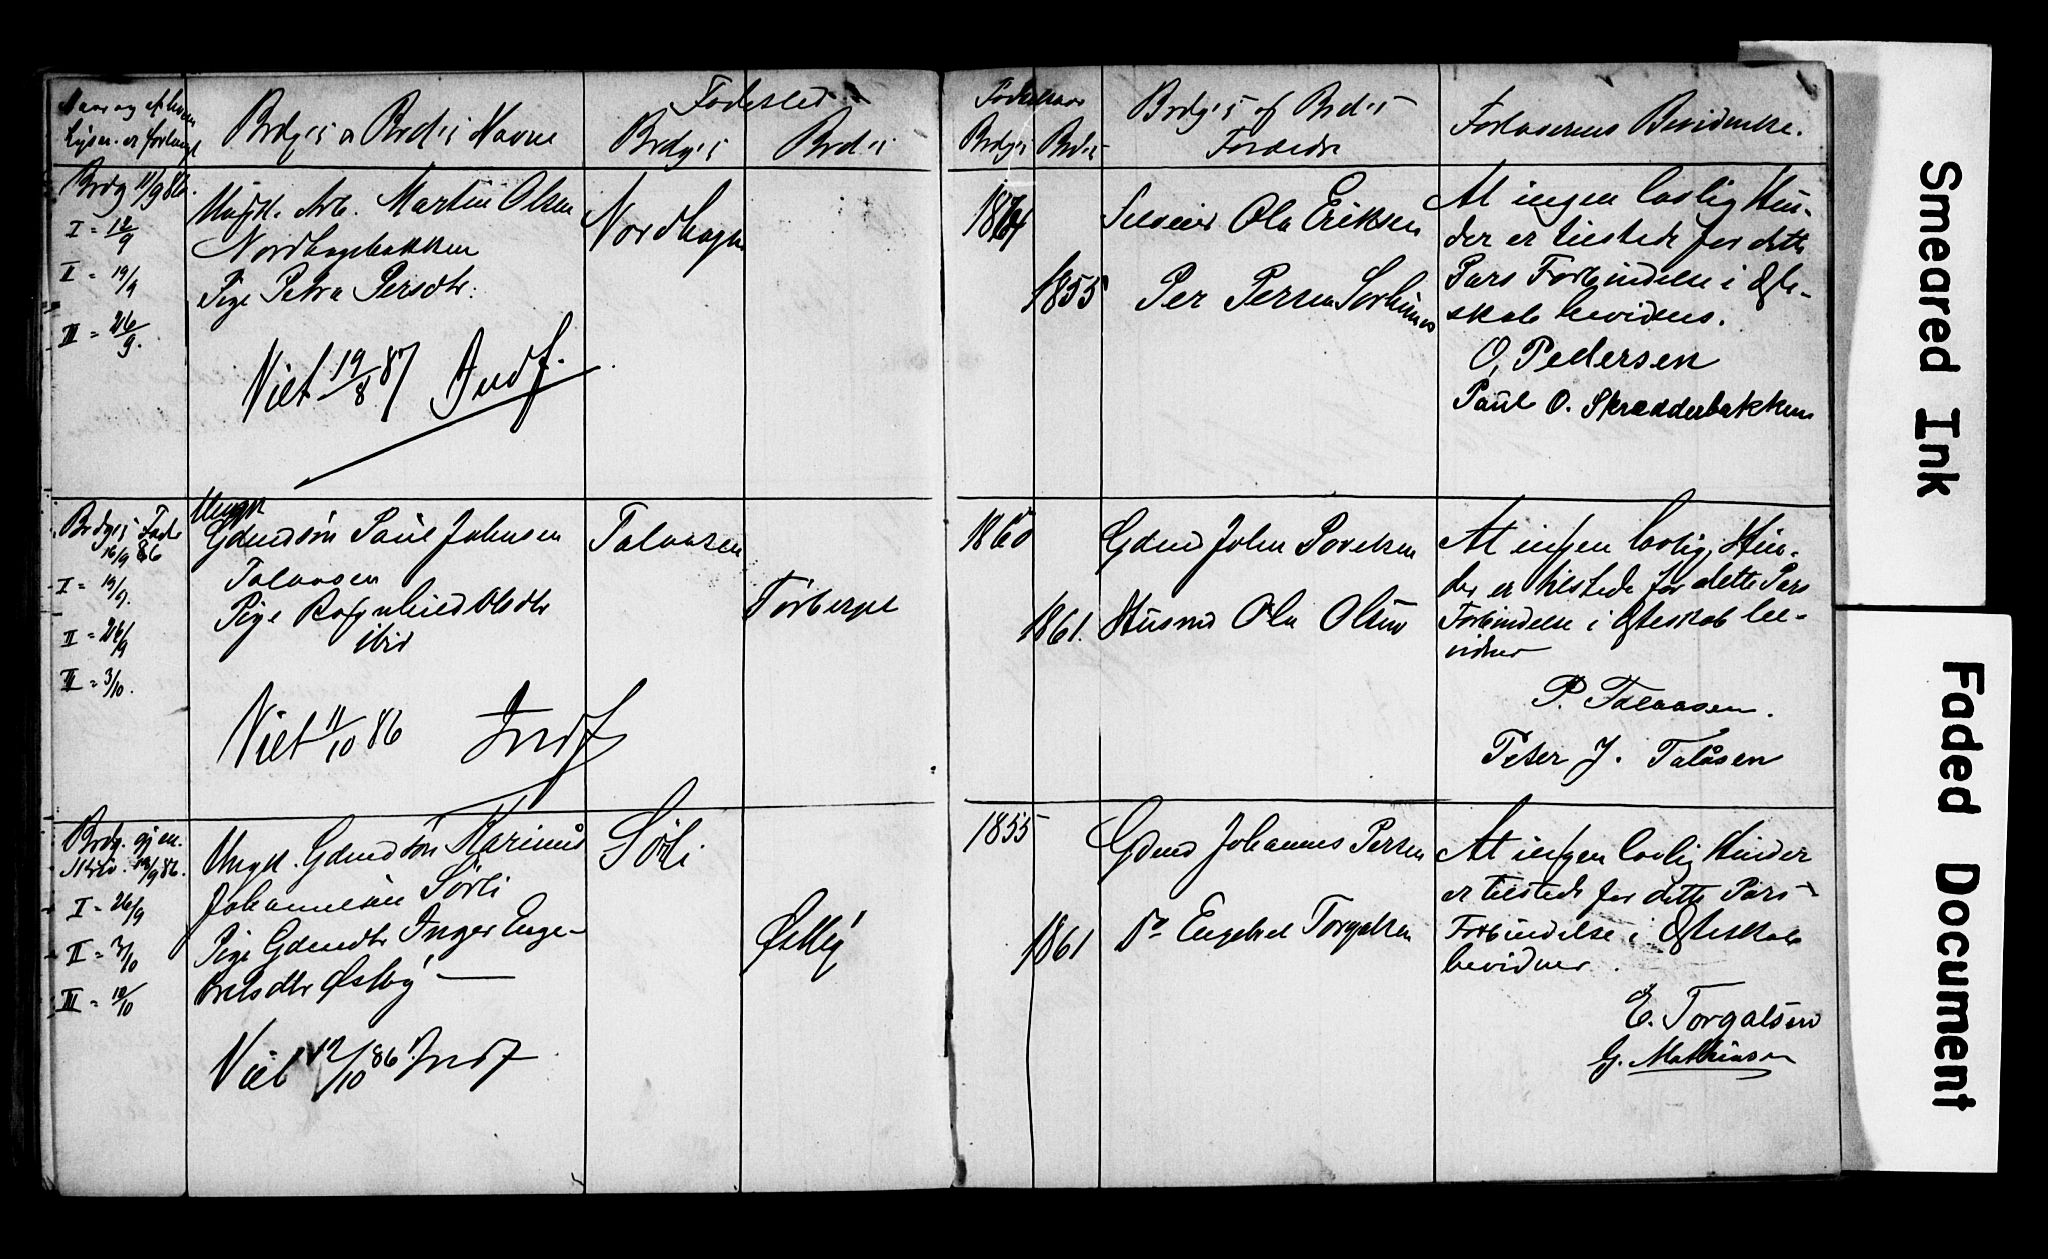 Naar og af hvem
Lysn. er forlangt
Brdg's og Brd's Navne
Fødested
Brdg's
Brd's
Fødselsaar
Brdg's
Brd's
Brdg's og Brd's
Forældre
Forloverens Bevidnelse.
Brdg 11/9 86.
I = 12/9
II = 19/9
III = 26/9.
Ungk. Arb. Martin Olsen
Nordhagebakken
Pige Petra Persdtr.
Viet 19/8 87 Indf.
Nordhagen
1864
1855
Ola Eriksen
Per Persen Sorhuus
At ingen lovlig Hin-
der er tilstede for dette
Pars Forbindelse i Ægte-
skab bevidnes.
O. Pedersen
Paul O. Skrædderbakken
Brdg's Fader
16/9 86
I = 19/9.
II = 26/9
III = 3/10.
Ungk
Gdmdsøn Paul Johnsen
Talaasen
Pige Ragnhild Olsdtr
ibid
Viet 11/10 86 Indf
Talaasen
Torberget
1860
1861.
Gdmd John Povelsen
Husmd Ola Olsen
At ingen lovlig Hin-
der er tilstede for dette Pars
Forbindelse i Ægteskab be-
vidner
P. Talaasen.
Peter J. Talåsen
Brdg. gj. en.
Skriv. 19/9 86.
I = 26/9
II = 3/10
III = 10/10
Ungk. Gdmdsøn Karinus
Johannesen Sörli
Pige Gdmdtr Inger Enge-
bretsdtr Østby
Viet 12/10 86 Indf
Sörli
Østby
1855
1861
Gdmd Johannes Persen
Do Engebret Torgalsen
At ingen lovlig Hinder
er tilstede for dette Pars
Forbindelse i Ægteskab
bevidner.
E. Torgalsen
G. Mathinsen
Smeared Ink
Faded Document